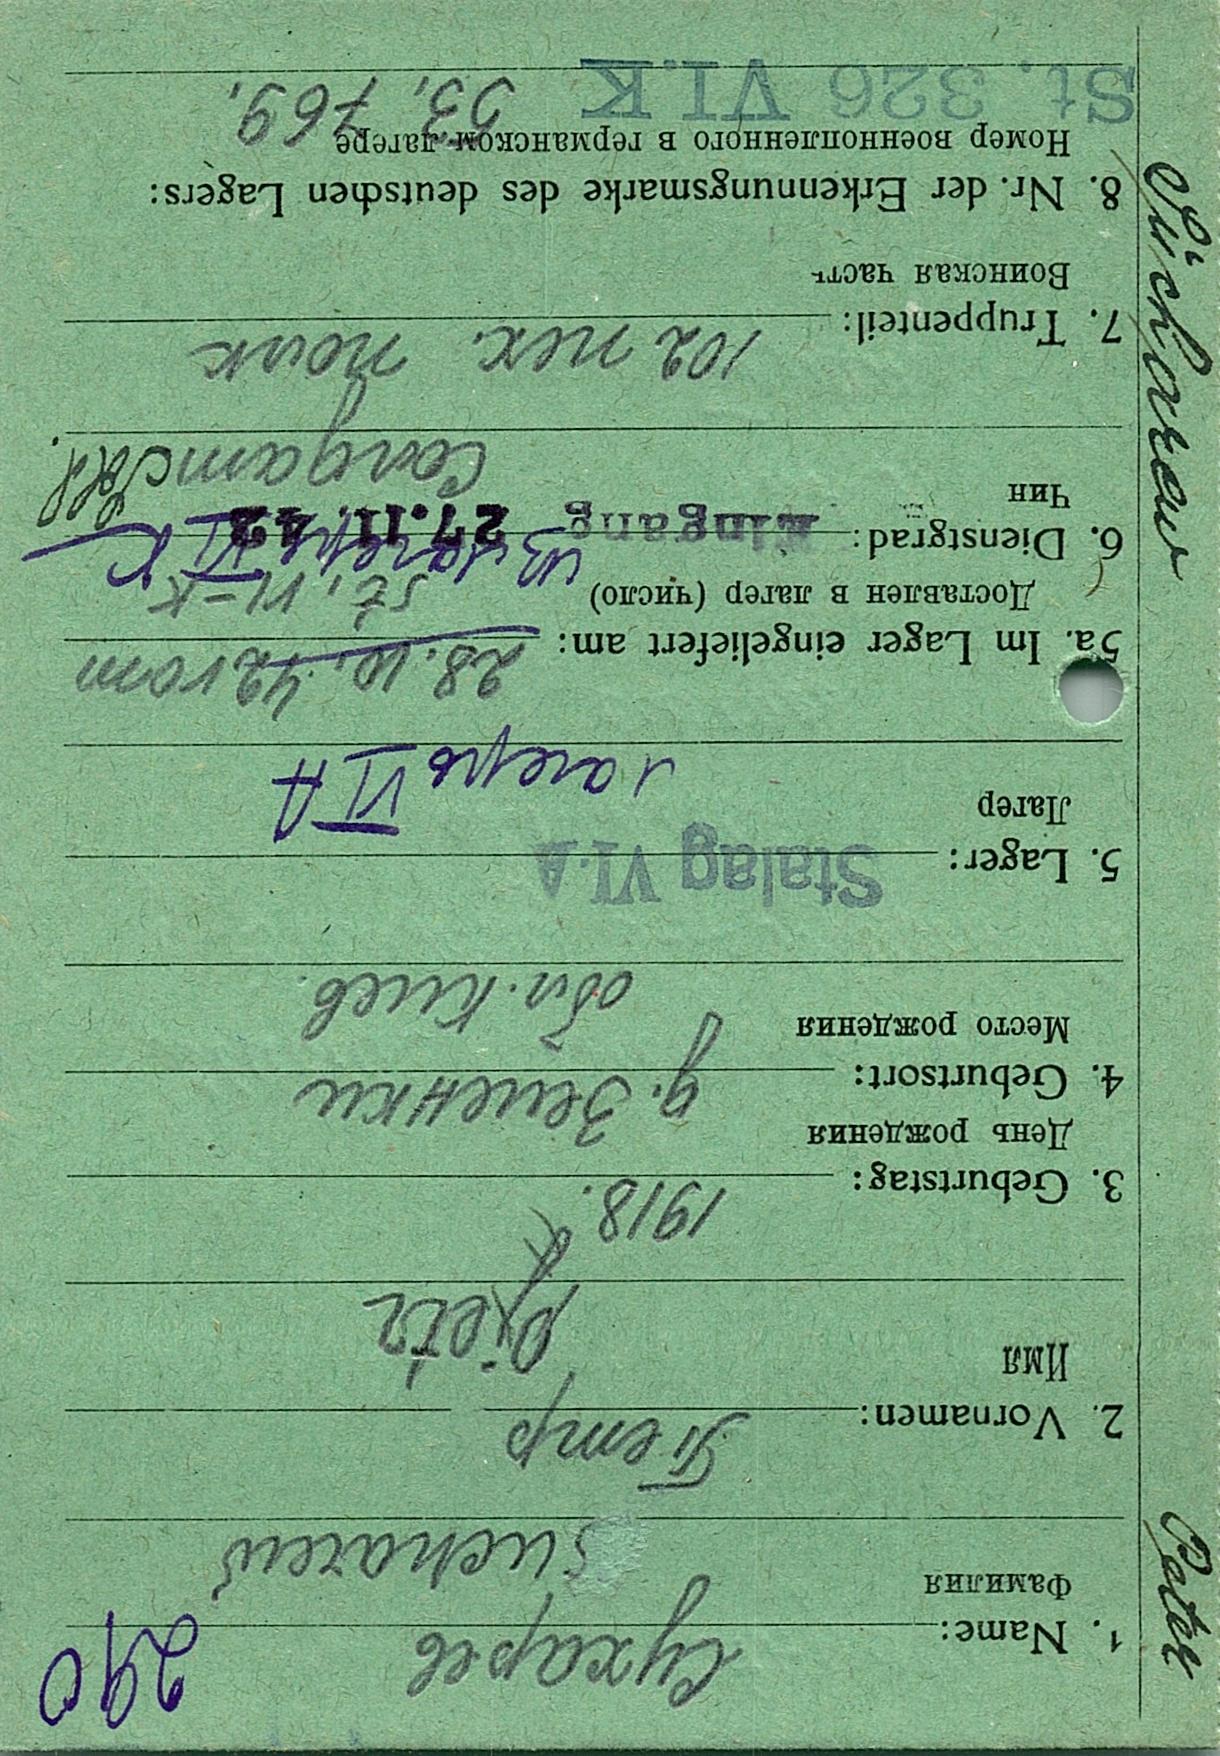 290
1. Name: Сухарев
Фамилия
Sucharew
2. Vornamen: Петр
Имя
Pjotr
3. Geburtstag: 1918.
День рождения
4. Geburtsort: д. Зеленки
Место рождения
обл. Киев.
5. Lager: Stalag VI.A
Лагер
лагерь VI A
5a. Im Lager eingeliefert am: 28.10.42 vom
Доставлен в лагер (число) St. VI-K
из лагеря VI K
6. Dienstgrad: Eingang 27.11.42
Чин
Солдат Sol.
7. Truppenteil: 102 пех. полк
Воинская часть
8. Nr. der Erkennungsmarke des deutschen Lagers:
Номер военнопленного в германском лагере
St. 326 VI.K 53.769.
Sucharew
Peter